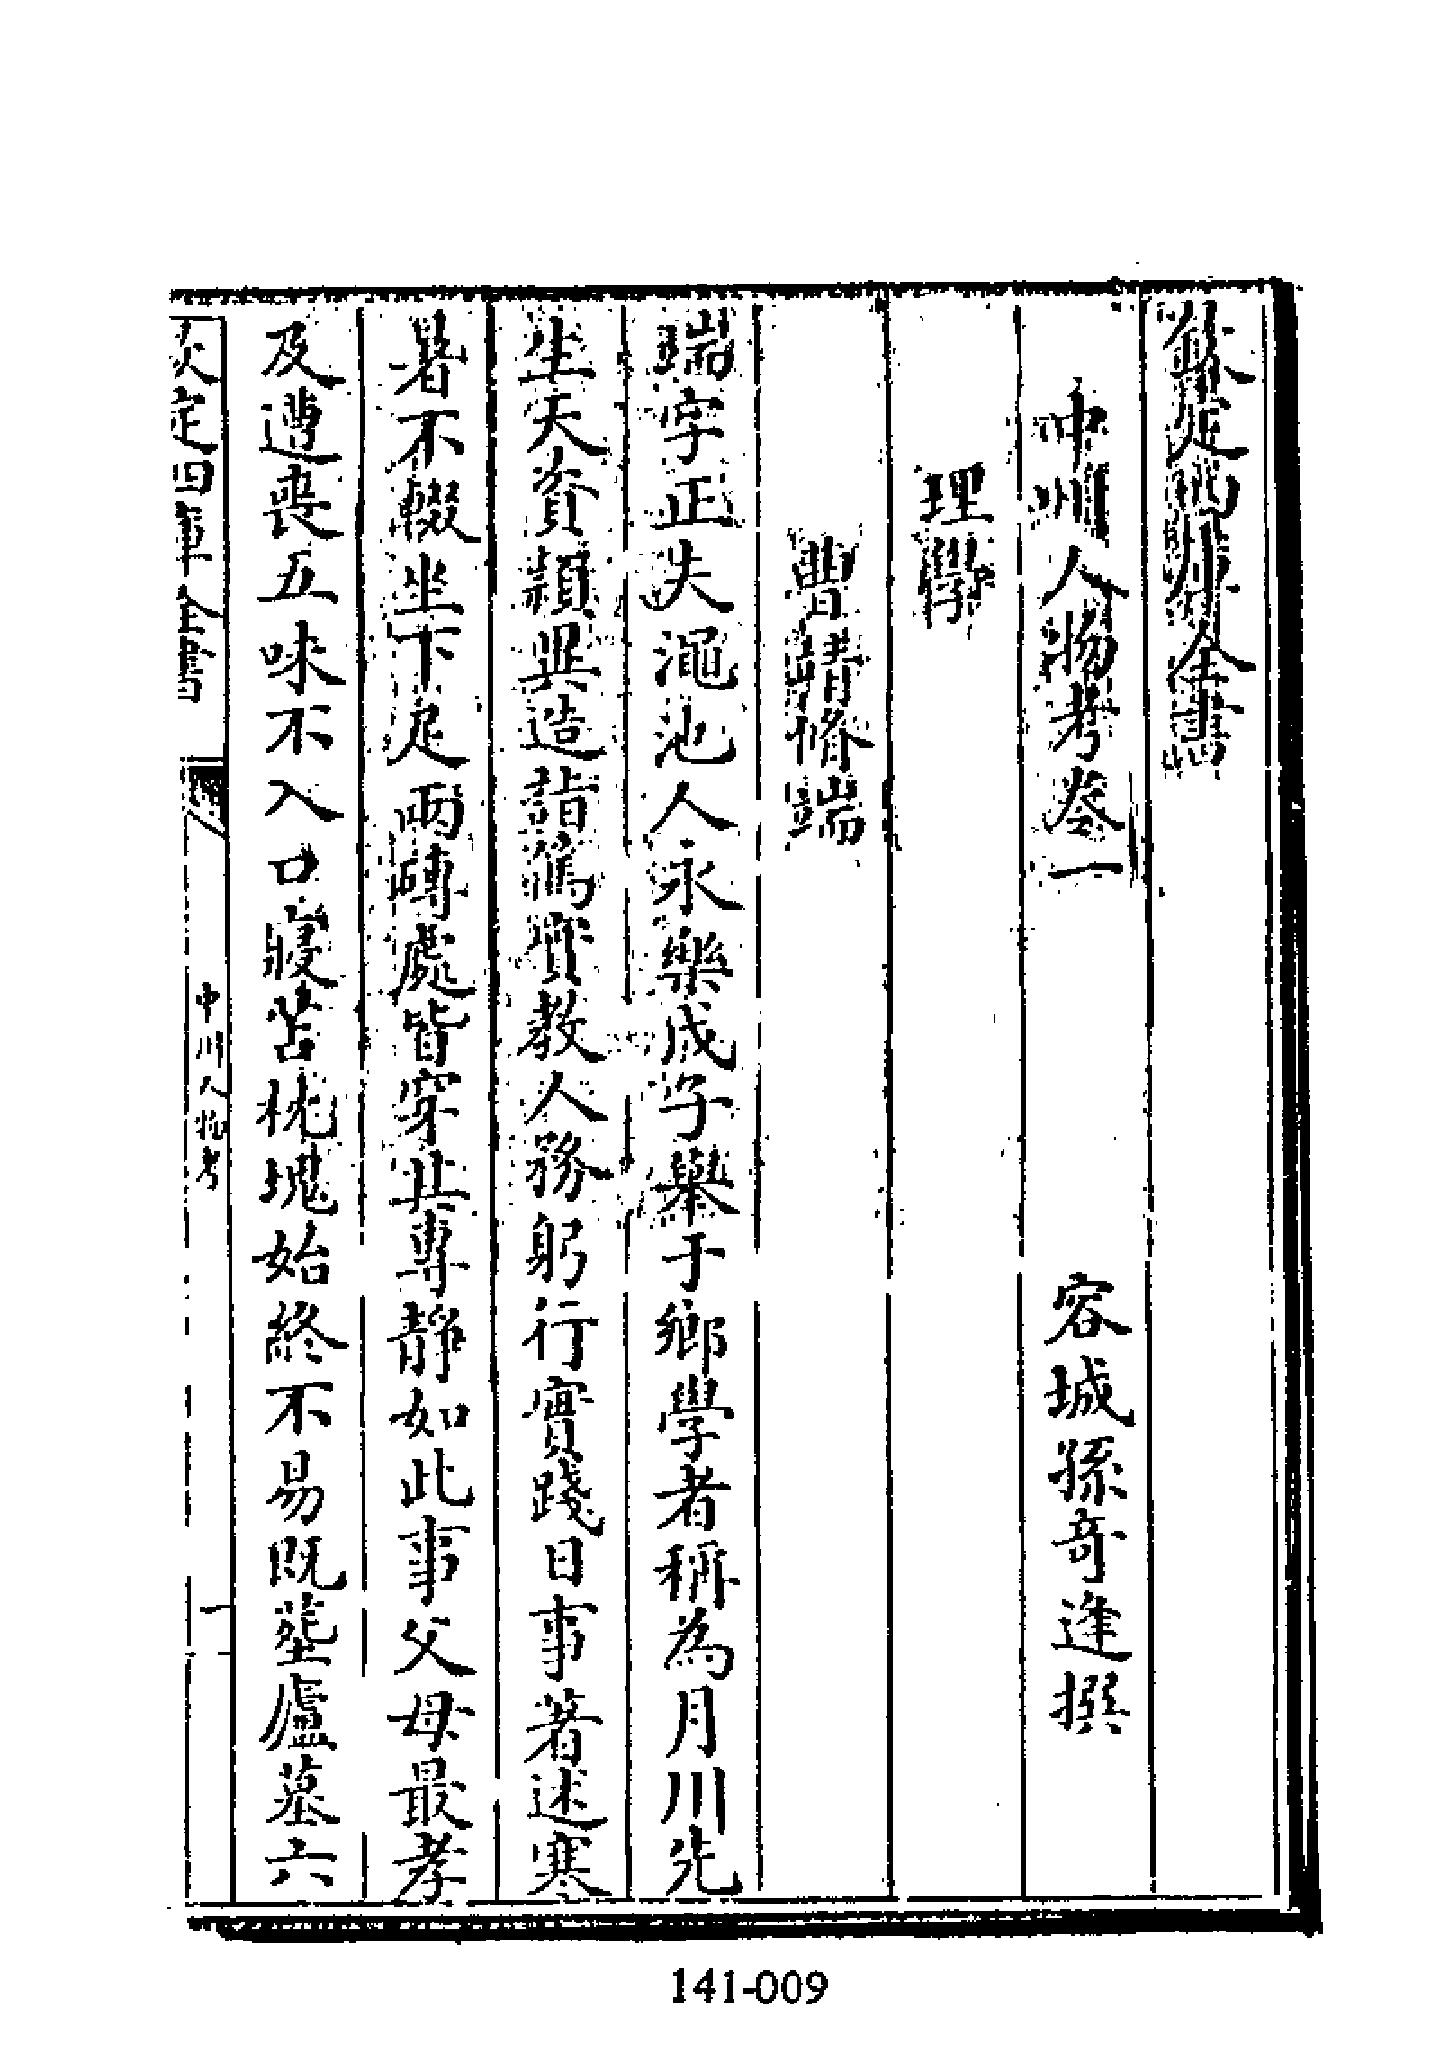 欽定四庫全書
中州人物考卷一 容城孫奇逢撰
理學
曹靖修端
端字正夫澠池人永樂戊子舉于鄉學者稱為月川先
生天資穎異造詣篤實教人務躬行實踐日事著述寒
暑不輟坐下足兩磚處皆穿其專靜如此事父母最孝
及遭喪五味不入口寢苫枕塊始終不易既塟廬墓六
欽定四庫全書
中州人物考
一
141-009